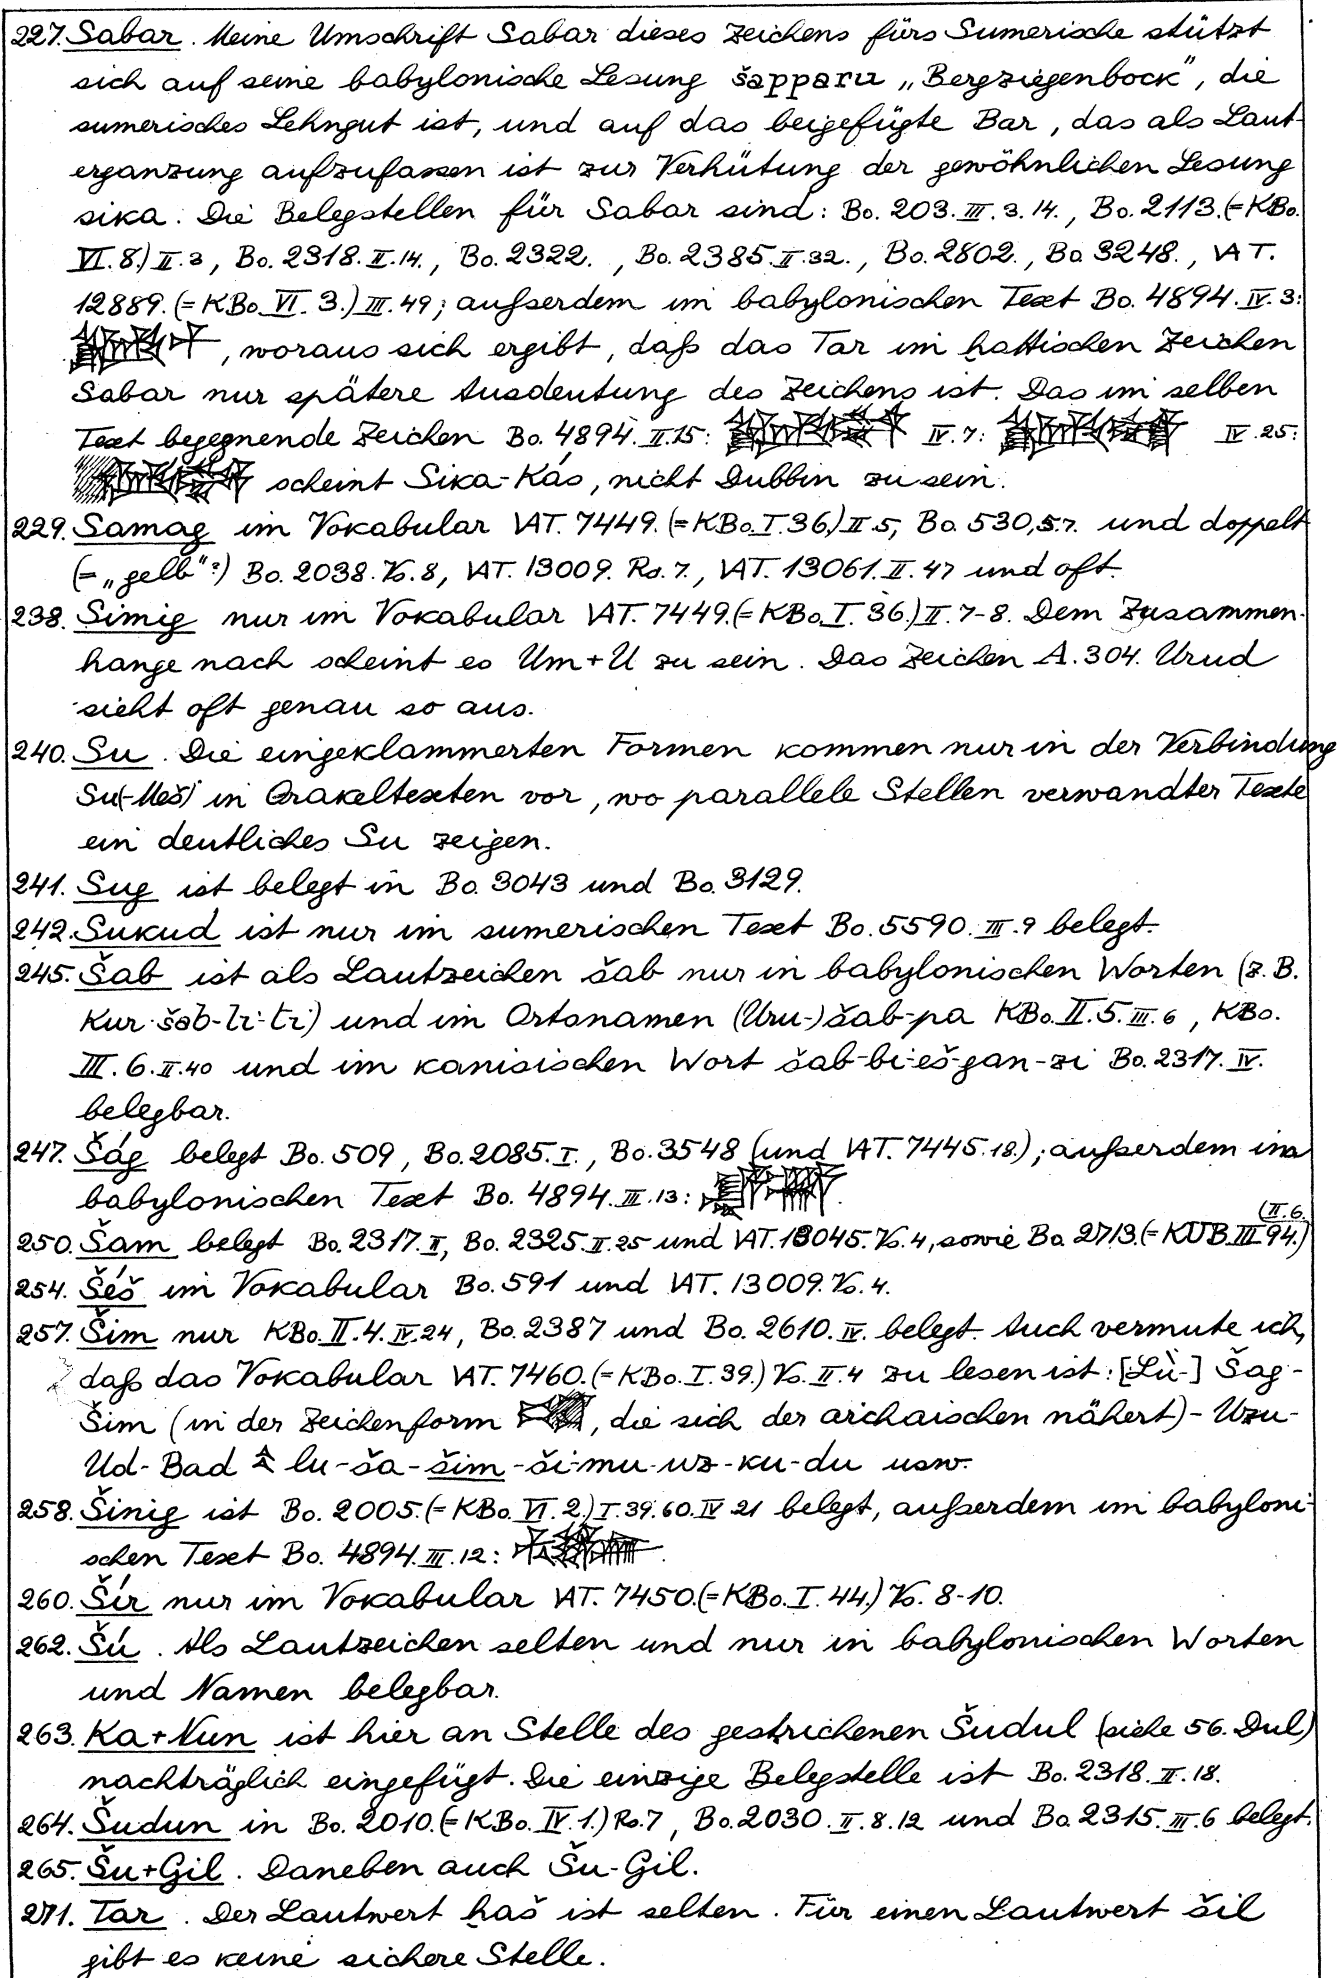 227. Sabar. Meine Umschrift Sabar dieses Zeichens fürs Sumerische stützt
sich auf seine babylonische Lesung šapparu „Bergziegenbock“, die
sumerisches Lehngut ist, und auf das beigefügte Bar, das als Laut-
ergänzung aufzufassen ist zur Verhütung der gewöhnlichen Lesung
sika. Die Belegstellen für Sabar sind: Bo. 203. III. 3. 14., Bo. 2113. (=KBo.
VI. 8.) II. 3, Bo. 2318. II. 14., Bo. 2322. , Bo. 2385. II. 32., Bo. 2802., Bo. 3248., VAT.
12889. (=KBo. VI. 3.) III. 49; außerdem im babylonischen Text Bo. 4894. IV. 3:
, woraus sich ergibt, daß das Tar im ḫattischen Zeichen
Sabar nur spätere Ausdeutung des Zeichens ist. Das im selben
Text begegnende Zeichen Bo. 4894. II. 15: IV. 7: IV. 25:
scheint Sika-Kás, nicht Dubbin zu sein.
229. Samag im Vokabular VAT. 7449. (=KBo. I. 36.) II. 5, Bo. 530, 5.7. und doppelt
(= „gelb“?) Bo. 2038. Vs. 8, VAT. 13009. Rs. 7., VAT. 13061. II. 47 und oft.
238. Simig nur im Vokabular VAT. 7449. (=KBo. I. 36.) II. 7-8. Dem Zusammen-
hange nach scheint es Um+U zu sein. Das Zeichen A. 304. Urud
sieht oft genau so aus.
240. Su. Die eingeklammerten Formen kommen nur in der Verbindung
Su(-Meš) in Orakeltexten vor, wo parallele Stellen verwandter Texte
ein deutliches Su zeigen.
241. Sug ist belegt in Bo. 3043 und Bo. 3129.
242. Sukud ist nur im sumerischen Text Bo. 5590. III. 9 belegt.
245. Šab ist als Lautzeichen šab nur in babylonischen Worten (z. B.
Kur šab-li-ti) und im Ortsnamen (Uru-)šab-pa KBo. II. 5. III. 6, KBo.
III. 6. II. 40 und im kanisischen Wort šab-bi-eš-gan-zi Bo. 2317. IV.
belegbar.
247. Šág belegt Bo. 509, Bo. 2085. I., Bo. 3548 (und VAT. 7445. 18.); außerdem im
babylonischen Text Bo. 4894. III. 13: .
250. Šam belegt Bo. 2317. II, Bo. 2325. II. 25 und VAT. 13045. Vs. 4, sowie Bo. 2713. (=KUB. III. 94.) (II. 6.
254. Šéš im Vokabular Bo. 591 und VAT. 13009. Vs. 4.
257. Šim nur KBo. II. 4. IV. 24, Bo. 2387 und Bo. 2610. IV. belegt. Auch vermute ich,
daß das Vokabular VAT. 7460. (=KBo. I. 39.) Vs. II. 4 zu lesen ist: [Lù-] Šag-
Šim (in der Zeichenform , die sich der archaischen nähert) - Uzu-
Ud-Bad lu-ša-šim-ši-mu-uz-ku-du usw.
258. Šinig ist Bo. 2005. (=KBo. VI. 2.) I. 39. 60. IV 21 belegt, außerdem im babyloni-
schen Text Bo. 4894. III. 12: .
260. Šír nur im Vokabular VAT. 7450. (=KBo. I. 44.) Vs. 8-10.
262. Šú. Als Lautzeichen selten und nur in babylonischen Worten
und Namen belegbar.
263. Ka+Nun ist hier an Stelle des gestrichenen Šudul (siehe 56. Dul)
nachträglich eingefügt. Die einzige Belegstelle ist Bo. 2318. II. 18.
264. Šudun in Bo. 2010. (=KBo. IV. 1.) Rs. 7, Bo. 2030. II. 8. 12 und Bo. 2315. III. 6 belegt.
265. Šu+Gil. Daneben auch Šu-Gil.
271. Tar. Der Lautwert ḫaš ist selten. Für einen Lautwert šil
gibt es keine sichere Stelle.